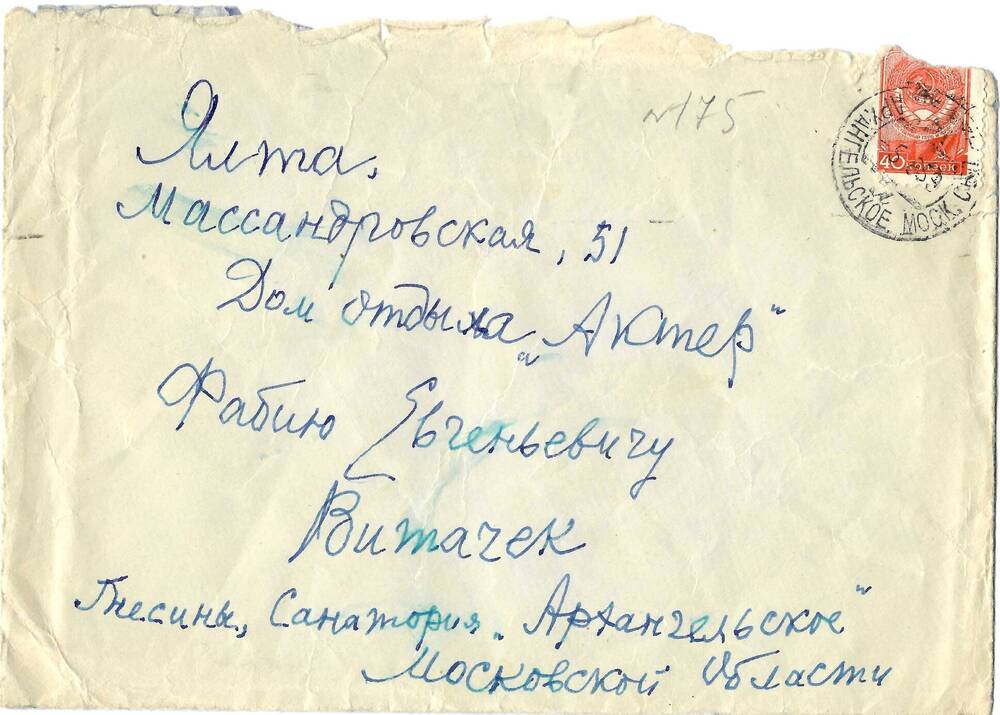 N175
Ялта,
Массандровская, 51
Дом отдыха „Актер"
Фабию Евгеньевичу
Витачек
Гнесины, Санатория „Архангельское"
Московской области
40 КОПЕЕК
АРХАНГЕЛЬСКОЕ МОСК.